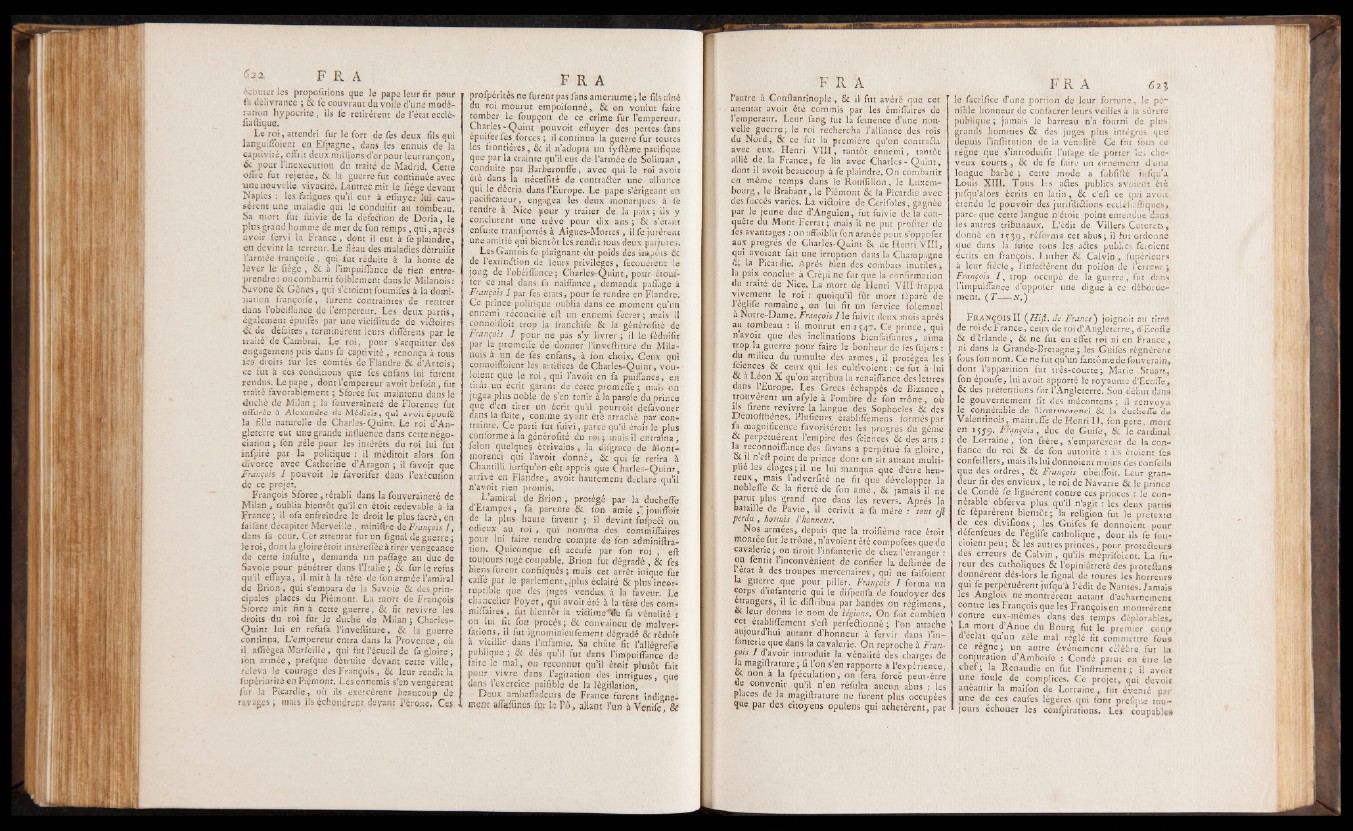 622 F R A
écouter les propositions que le pape leur fit pour
sa délivrance ; & se couvrant du voile d'une modé-
ration hypocrite, ils se retirèrent de l'état ecclé-
siastique.
Le roi, attendri sur le sort de ses deux fils qui
languissoient en Espagne, dans les ennuis de la
captivité, offrit deux millions d'or pour leur rançon,
& pour l'inexécution du traité de Madrid. Cette
offre fut rejetée, & la guerre fut continuée avec
une nouvelle vivacité. Lautrec mit le siége devant
Naples : les fatigues qu'il eut à essuyer lui cau-
sèrent une maladie qui le conduisit au tombeau.
Sa mort fut suivie de la défection de Doria, le
plus grand homme de mer de son temps, qui, après
avoir servi la France, dont il eut à se plaindre,
en devint la terreur. Le fléau des maladies détruisit
l'armée françoise, qui fut réduite à la honte de
lever le siége, & à l'impuissance de rien entre-
prendre : on combattit foiblement dans le Milanois :
Savone & Gênes, qui s'étoient soumises à la domi-
nation françoise, furent contraintes de rentrer
dans l'obéissance de l'empereur. Les deux partis,
également épuisés par une vicissitude de victoires
& de défaites, terminèrent leurs différens par le
traité de Cambrai. Le roi, pour s'acquitter des
engagemens pris dans sa captivité, renonça à tous
ses droits sur les comtés de Flandre & d'Artois ;
ce fut à ces conditions que ses enfans lui furent
rendus. Le pape, dont l'empereur avoit besoin, fut
traité favorablement ; Sforce fut maintenu dans le
duché de Milan ; la souveraineté de Florence fut
assurée à Alexandre de Médicis, qui avoit épousé
la fille naturelle de Charles-Quint. Le roi d'An-
gleterre eut une grande influence dans cette négo-
ciation ; son zèle pour les intérêts du roi lui fut
inspiré par la politique : il méditoit alors son
divorce avec Catherine d'Aragon ; il savoit que
François I pouvoit le favoriser dans l'exécution
de ce projet.
François Sforce, rétabli dans la souveraineté de
Milan, oublia bientôt qu'il en étoit redevable à la
France ; il osa enfreindre le droit le plus sacré, en
faisant décapiter Merveille, ministre de François I,
dans sa cour. Cet attentat fut un signal de guerre ;
le roi, dont la gloire étoit intéressée à tirer vengeance
de cette insulte, demanda un passage au duc de
Savoie pour pénétrer dans l'Italie ; & sur le refus
qu'il essuya, il mit à la tête de son armée l'amiral
de Brion, qui s'empara de la Savoie & des prin-
cipales places du Piémont. La mort de François
Sforce mit fin à cette guerre, & fit revivre les
droits du roi sur le duché de Milan ; Charles-
Quint lui en refusa l'investiture, & la guerre
continua. L'empereur entra dans la Provence, où
il assiégea Marseille, qui fut l'écueil de sa gloire ;
son armée, presque détruite devant cette ville,
releva le courage des François, & leur rendit la
supériorité en Piémont. Les ennemis s'en vengèrent
sur la Picardie, où ils exercèrent beaucoup de
ravages ; mais ils échouèrent devant Pérone. Ces
F R A
prospérités ne furent pas sans amertume ; le fils aîné
du roi mourut empoisonné, & on voulut faire
tomber le soupçon de ce crime sur l'empereur.
Charles-Quint pouvoit essuyer des pertes sans
épuiser ses forces ; il continua la guerre sur toutes
les frontières, & il n'adopta un système pacifique
que par la crainte qu'il eut de l'armée de Soliman,
conduite par Barberousse, avec qui le roi avoit
été dans la nécessité de contracter une alliance
qui le décria dans l'Europe. Le pape s'érigeant en
pacificateur, engagea les deux monarques à se
rendre à Nice pour y traiter de la paix ; ils y
conclurent une trêve pour dix ans ; & s'étant
ensuite transportés à Aigues-Mortes, il se jurèrent
une amitié qui bientôt les rendit tous deux parjures.
Les Gantois se plaignant du poids des impôts &
de l'extinction de leurs privilèges, secouèrent le
joug de l'obéissance ; Charles-Quint, pour étouf-
fer ce mal dans sa naissance, demanda passage à
François I par ses états, pour se rendre en Flandre.
Ce prince politique oublia dans ce moment qu'un
ennemi réconcilié est un ennemi secret ; mais il
connoissoit trop la franchise & la générosité de
François I pour ne pas s'y livrer ; il le séduisit
par la promesse de donner l'investiture du Mila-
nois à un de ses enfans, à son choix. Ceux qui
connoissoient les artifices de Charles-Quint, vou-
loient que le roi, qui l'avoit en sa puissance, en
tirât un écrit garant de cette promesse ; mais on
jugea plus noble de s'en tenir à la parole du prince
que d'en tirer un écrit qu'il pourroit désavouer
dans la suite, comme ayant été arraché par con-
trainte. Ce parti fut suivi, parce qu'il étoit le plus
conforme à la générosité du roi ; mais il entraîna,
selon quelques écrivains, la disgrace de Mont-
morenci qui l'avoit donné, & qui se retira à
Chantilli lorsqu'on eût appris que Charles-Quint,
arrivé en Flandre, avoit hautement déclaré qu'il
n'avoit rien promis.
L'amiral de Brion, protégé par la duchesse
d'Etampes, sa parente & son amie, jouissoit
de la plus haute faveur ; il devint suspect ou
odieux au roi, qui nomma des commissaires
pour lui faire rendre compte de son administra-
tion. Quiconque est accusé par son roi, est
toujours jugé coupable. Brion fut dégradé, & ses
biens furent confisqués ; mais cet arrêt inique fut
cassé par le parlement, plus éclairé & plus incor-
ruptible que des juges vendus à la faveur. Le
chancelier Poyet, qui avoit été à la tête des com-
missaires, fut bientôt la victime de sa vénalité :
on lui fit son procès ; & convaincu de malver-
sations, il fut ignominieusement dégradé & réduit
à vieillir dans l'infamie. Sa chûte fit l'allégresse
publique ; & dès qu'il fut dans l'impuissance de
faire le mal, on reconnut qu'il étoit plutôt fait
pour vivre dans l'agitation des intrigues, que
dans l'exercice paisible de la législation.
Deux ambassadeurs de France furent indigne-
ment assassinés sur le Pô, allant l'un à Venise, &
F R A
l'autre à Constantinople, & il fut avéré que cet
attentat avoit été commis par les émissaires de
l'empereur. Leur sang fut la semence d'une nou-
velle guerre ; le roi rechercha l'alliance des rois
du Nord, & ce fut la première qu'on contracta
avec eux. Henri VIII, tantôt ennemi, tantôt
allié de la France, se lia avec Charles-Quint,
dont il avoit beaucoup à se plaindre. On combattit
en même temps dans le Roussillon, le Luxem-
bourg, le Brabant, le Piémont & la Picardie avec
des succès variés. La victoire de Cerisoles, gagnée
par le jeune duc d'Anguien, fut suivie de la con-
quête du Mont-Ferrat ; mais il ne put profiter de
ses avantages : on affoiblit son armée pour s'opposer
aux progrès de Charles-Quint & de Henri VIII,
qui avoient fait une irruption dans la Champagne
& la Picardie. Après bien des combats inutiles,
la paix conclue à Crépi ne fut que la confirmation
du traité de Nice. La mort de Henri VIII frappa
vivement le roi : quoiqu'il fût mort séparé de
l'église romaine, on lui fit un service solemnel
à Notre-Dame. François I le suivit deux mois après
au tombeau : il mourut en 1547. Ce prince, qui
n'avoit que des inclinations bienfaisantes, aima
trop la guerre pour faire le bonheur de ses sujets :
du milieu du tumulte des armes, il protégea les
sciences & ceux qui les cultivoient : ce fut à lui
& à Léon X qu'on attribua la renaissance des lettres
dans l'Europe. Les Grecs échappés de Bizance,
trouvèrent un asyle à l'ombre de son trône, où
ils firent revivre la langue des Sophocles & des
Démosthènes. Plusieurs établissemens formés par
sa magnificence favorisèrent les progrès du génie
& perpétuèrent l'empire des sciences & des arts :
la reconnoissance des savans a perpétué sa gloire,
& il n'est point de prince dont on ait autant multi-
plié les éloges ; il ne lui manqua que d'être heu-
reux, mais l'adversité ne fit que développer la
noblesse & la fierté de son ame, & jamais il ne
parut plus grand que dans les revers. Après la
bataille de Pavie, il écrivit à sa mère : tout est
perdu, hormis l'honneur.
Nos armées, depuis que la troisième race étoit
montée sur le trône, n'avoient été composées que de
cavalerie ; on tiroit l'infanterie de chez l'étranger :
on sentit l'inconvénient de confier la destinée de
l'état à des troupes mercenaires, qui ne faisoient
la guerre que pour piller. François I forma un
corps d'infanterie qui le dispensa de soudoyer des
étrangers, il le distribua par bandes ou régimens,
& leur donna le nom de légions. On sait combien
cet établissement s'est perfectionné ; l'on attache
aujourd'hui autant d'honneur à servir dans l'in-
fanterie que dans la cavalerie. On reproche à Fran-
çois I d'avoir introduit la vénalité des charges de
la magistrature ; si l'on s'en rapporte à l'expérience,
& non à la spéculation, on sera forcé peut-être
de convenir qu'il n'en résulta aucun abus : les
places de la magistrature ne furent plus occupées
que par des citoyens opulens qui achetèrent, par
F R A 623
le sacrifice d'une portion de leur fortune, le pé-
nible honneur de consacrer leurs veilles à la sûreté
publique ; jamais le barreau n'a fourni de plus
grands hommes & des juges plus intègres que
depuis l'institution de la vénalité. Ce fut sous ce
règne que s'introduisit l'usage de porter les che-
veux courts, & de se faire un ornement d'une
longue barbe ; cette mode a subsisté jusqu'à
Louis XIII. Tous les actes publics avoient été
jusqu'alors écrits en latin, & c'est ce qui avoit
étendu le pouvoir des jurisdictions ecclésiastiques,
parce que cette langue n'étoit point entendue dans
les autres tribunaux. L'édit de Villers-Coterets,
donné en 1539, réforma cet abus ; il fut ordonné
que dans la suite tous les actes publics seroient
écrits en françois. Luther & Calvin, supérieurs
à leur siècle, l'infectèrent du poison de l'erreur ;
François I, trop occupé de la guerre, fut dans
l'impuissance d'opposer une digue à ce déborde-
ment. (T—N.)
FRANÇOIS II (Hist. de France) joignoit au titre
de roi de France, ceux de roi d'Angleterre, d'Ecosse
& d'Irlande, & ne fut en effet roi ni en France,
ni dans la Grande-Bretagne ; les Guises régnèrent
sous son nom. Ce ne fut qu'un fantôme de souverain,
dont l'apparition fut très-courte ; Marie Stuart,
son épouse, lui avoit apporté le royaume d'Ecosse,
& des prétentions sur l'Angleterre. Son début dans
le gouvernement fit des mécontens ; il renvoya
le connétable de Montmorenci & la duchesse de
Valentinois, maîtresse de Henri II, son père, mort
en 1559. François, duc de Guise, & le cardinal
de Lorraine, son frère, s'emparèrent de la con-
fiance du roi & de son autorité : ils étoient ses
conseillers, mais ils lui donnoient moins des conseils
que des ordres, & François obéissoit. Leur gran-
deur fit des envieux, le roi de Navarre & le prince
de Condé se liguèrent contre ces princes : le con-
nétable observa plus qu'il n'agit : les deux partis
se séparèrent bientôt ; la religion fut le pretexte
de ces divisions ; les Guises se donnoient pour
défenseurs de l'église catholique, dont ils se sou-
cioient peu ; & les autres princes, pour protecteurs
des erreurs de Calvin, qu'ils méprisoient. La fu-
reur des catholiques & l'opiniâtreté des protestans
donnèrent dès-lors le signal de toutes les horreurs
qui se perpétuèrent jusqu'à l'édit de Nantes. Jamais
les Anglois ne montrèrent autant d'acharnement
contre les François que les François en montrèrent
contre eux-mêmes dans des temps déplorables.
La mort d'Anne du Bourg fut le premier coup
d'éclat qu'un zèle mal réglé fit commettre sous
ce règne ; un autre évènement célèbre fut la
conjuration d'Amboise : Condé parut en être le
chef ; la Renaudie en fut l'instrument ; il avoit
une foule de complices. Ce projet, qui devoit
anéantir la maison de Lorraine, fut éventé par
une de ces causes légères qui font presque tou-
jours échouer les conspirations. Les coupables